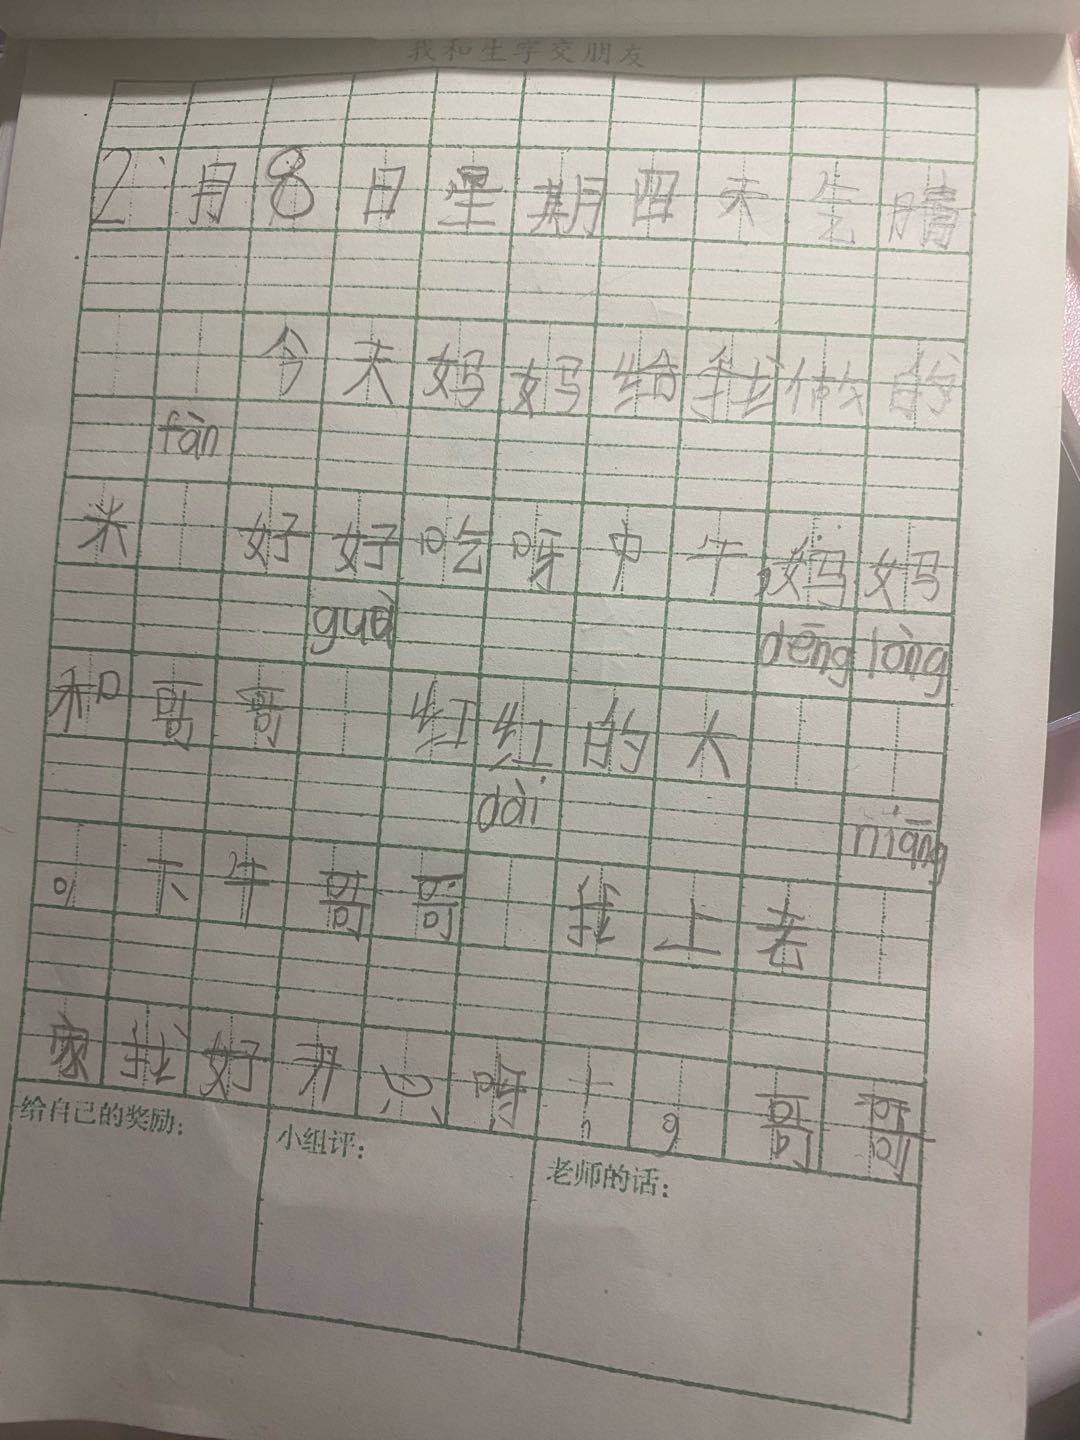 我和生字交朋友
2月8日星期四天气晴
今天妈妈给我做的
fàn
米 好好吃呀中午,妈妈
guà dēng lòng
和哥哥 红红的大
dài niāng
。下午哥哥 我上老
家我好开心呀!,哥哥
给自己的奖励:
小组评:
老师的话: